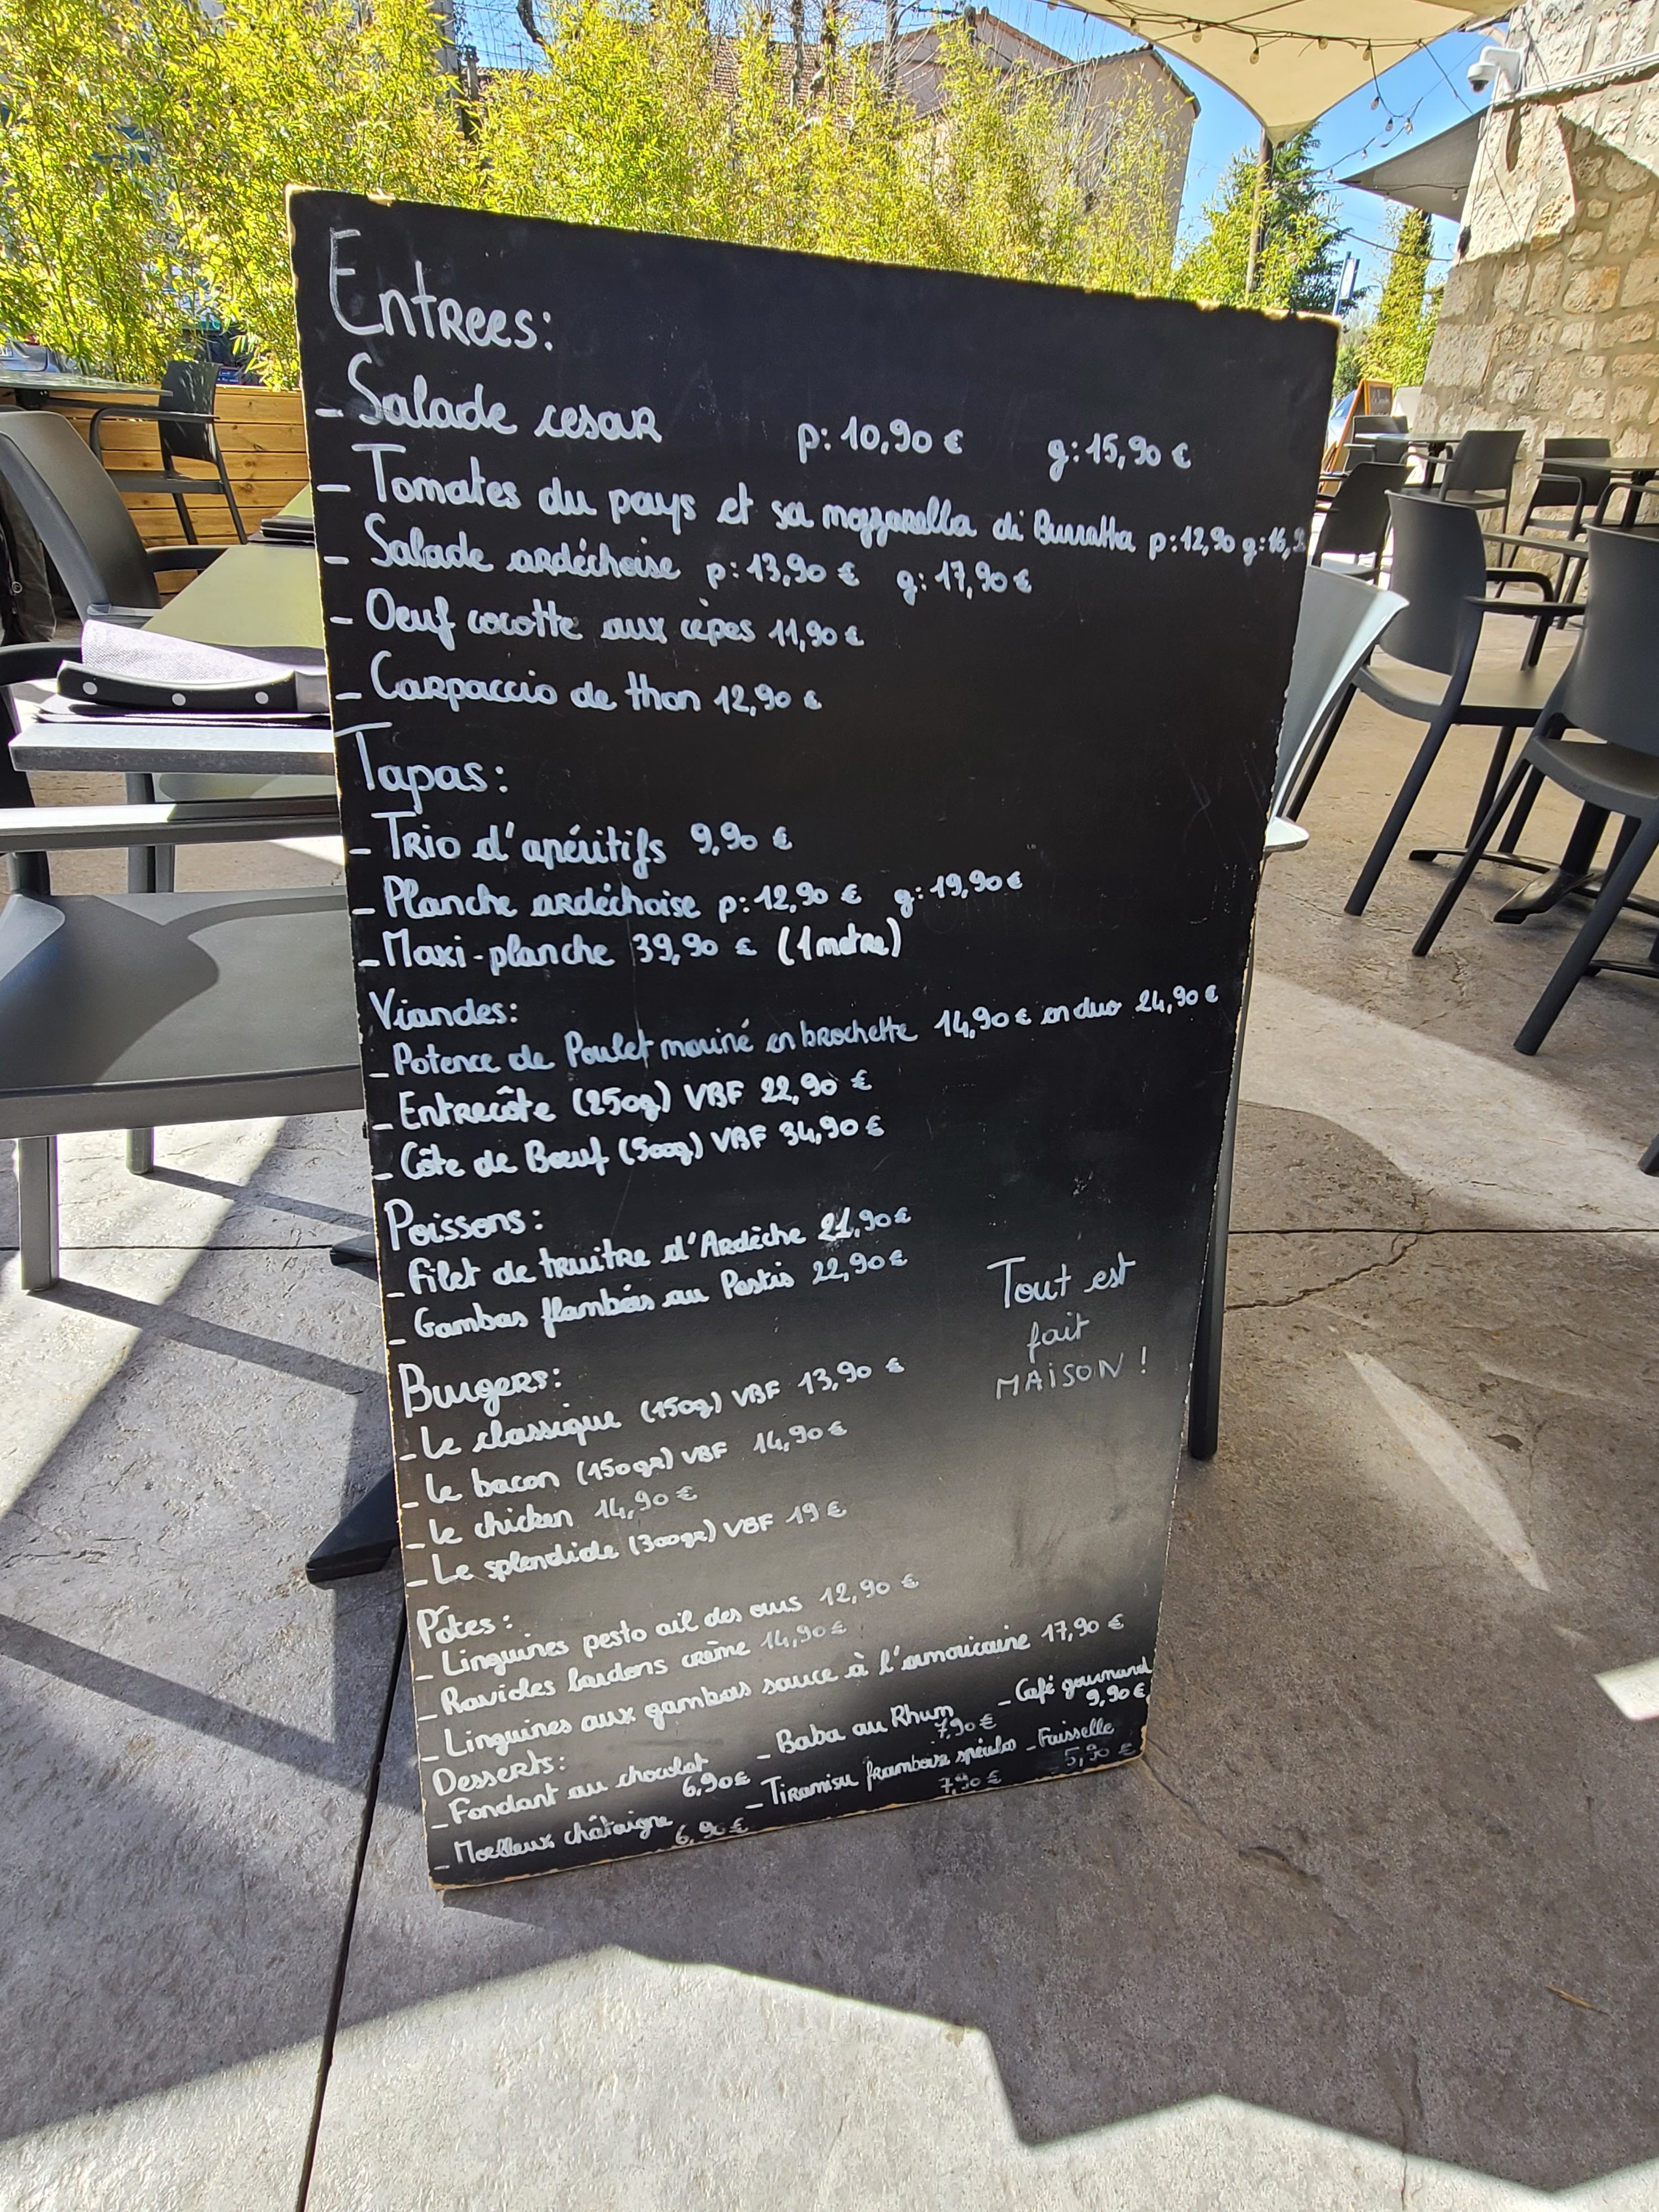 Entrees:
- Salade cesar p: 10,90 € g: 15,90 €
- Tomates du pays et sa mozzarella di Burratta p: 12,90 g: 16,
- Salade ardéchoise p: 13,90 € g: 17,90 €
- Oeuf cocotte aux cèpes 11,90 €
- Carpaccio de thon 12,90 €
Tapas:
- Trio d'apéritifs 9,90 €
- Planche ardéchoise p: 12,90 € g: 19,90 €
- Maxi-planche 39,90 € (1 metre)
Viandes:
- Potence de Poulet mariné en brochette 14,90 € en duo 24,90 €
- Entrecôte (250g) VBF 22,90 €
- Côte de Bœuf (500g) VBF 34,90 €
Poissons:
- Filet de truitre d'Ardèche 21,90 €
- Gambas flambées au Pastis 22,90 €
Tout est
fait
MAISON !
Burgers:
- Le classique (150g) VBF 13,90 €
- Le bacon (150gr) VBF 14,90 €
- Le chicken 14,90 €
- Le splendide (300gr) VBF 19 €
Pâtes:
- Linguines pesto ail des ours 12,90 €
- Ravioles lardons crème 14,90 €
- Linguines aux gambas sauce à l'armoricaine 17,90 €
Desserts:
- Fondant au chocolat 6,90 €
- Baba au Rhum 7,90 €
- Café gourmand 9,90 €
- Moelleux châtaigne 6,90 €
- Tiramisu framboise spéculos 7,90 €
- Faisselle 5,90 €